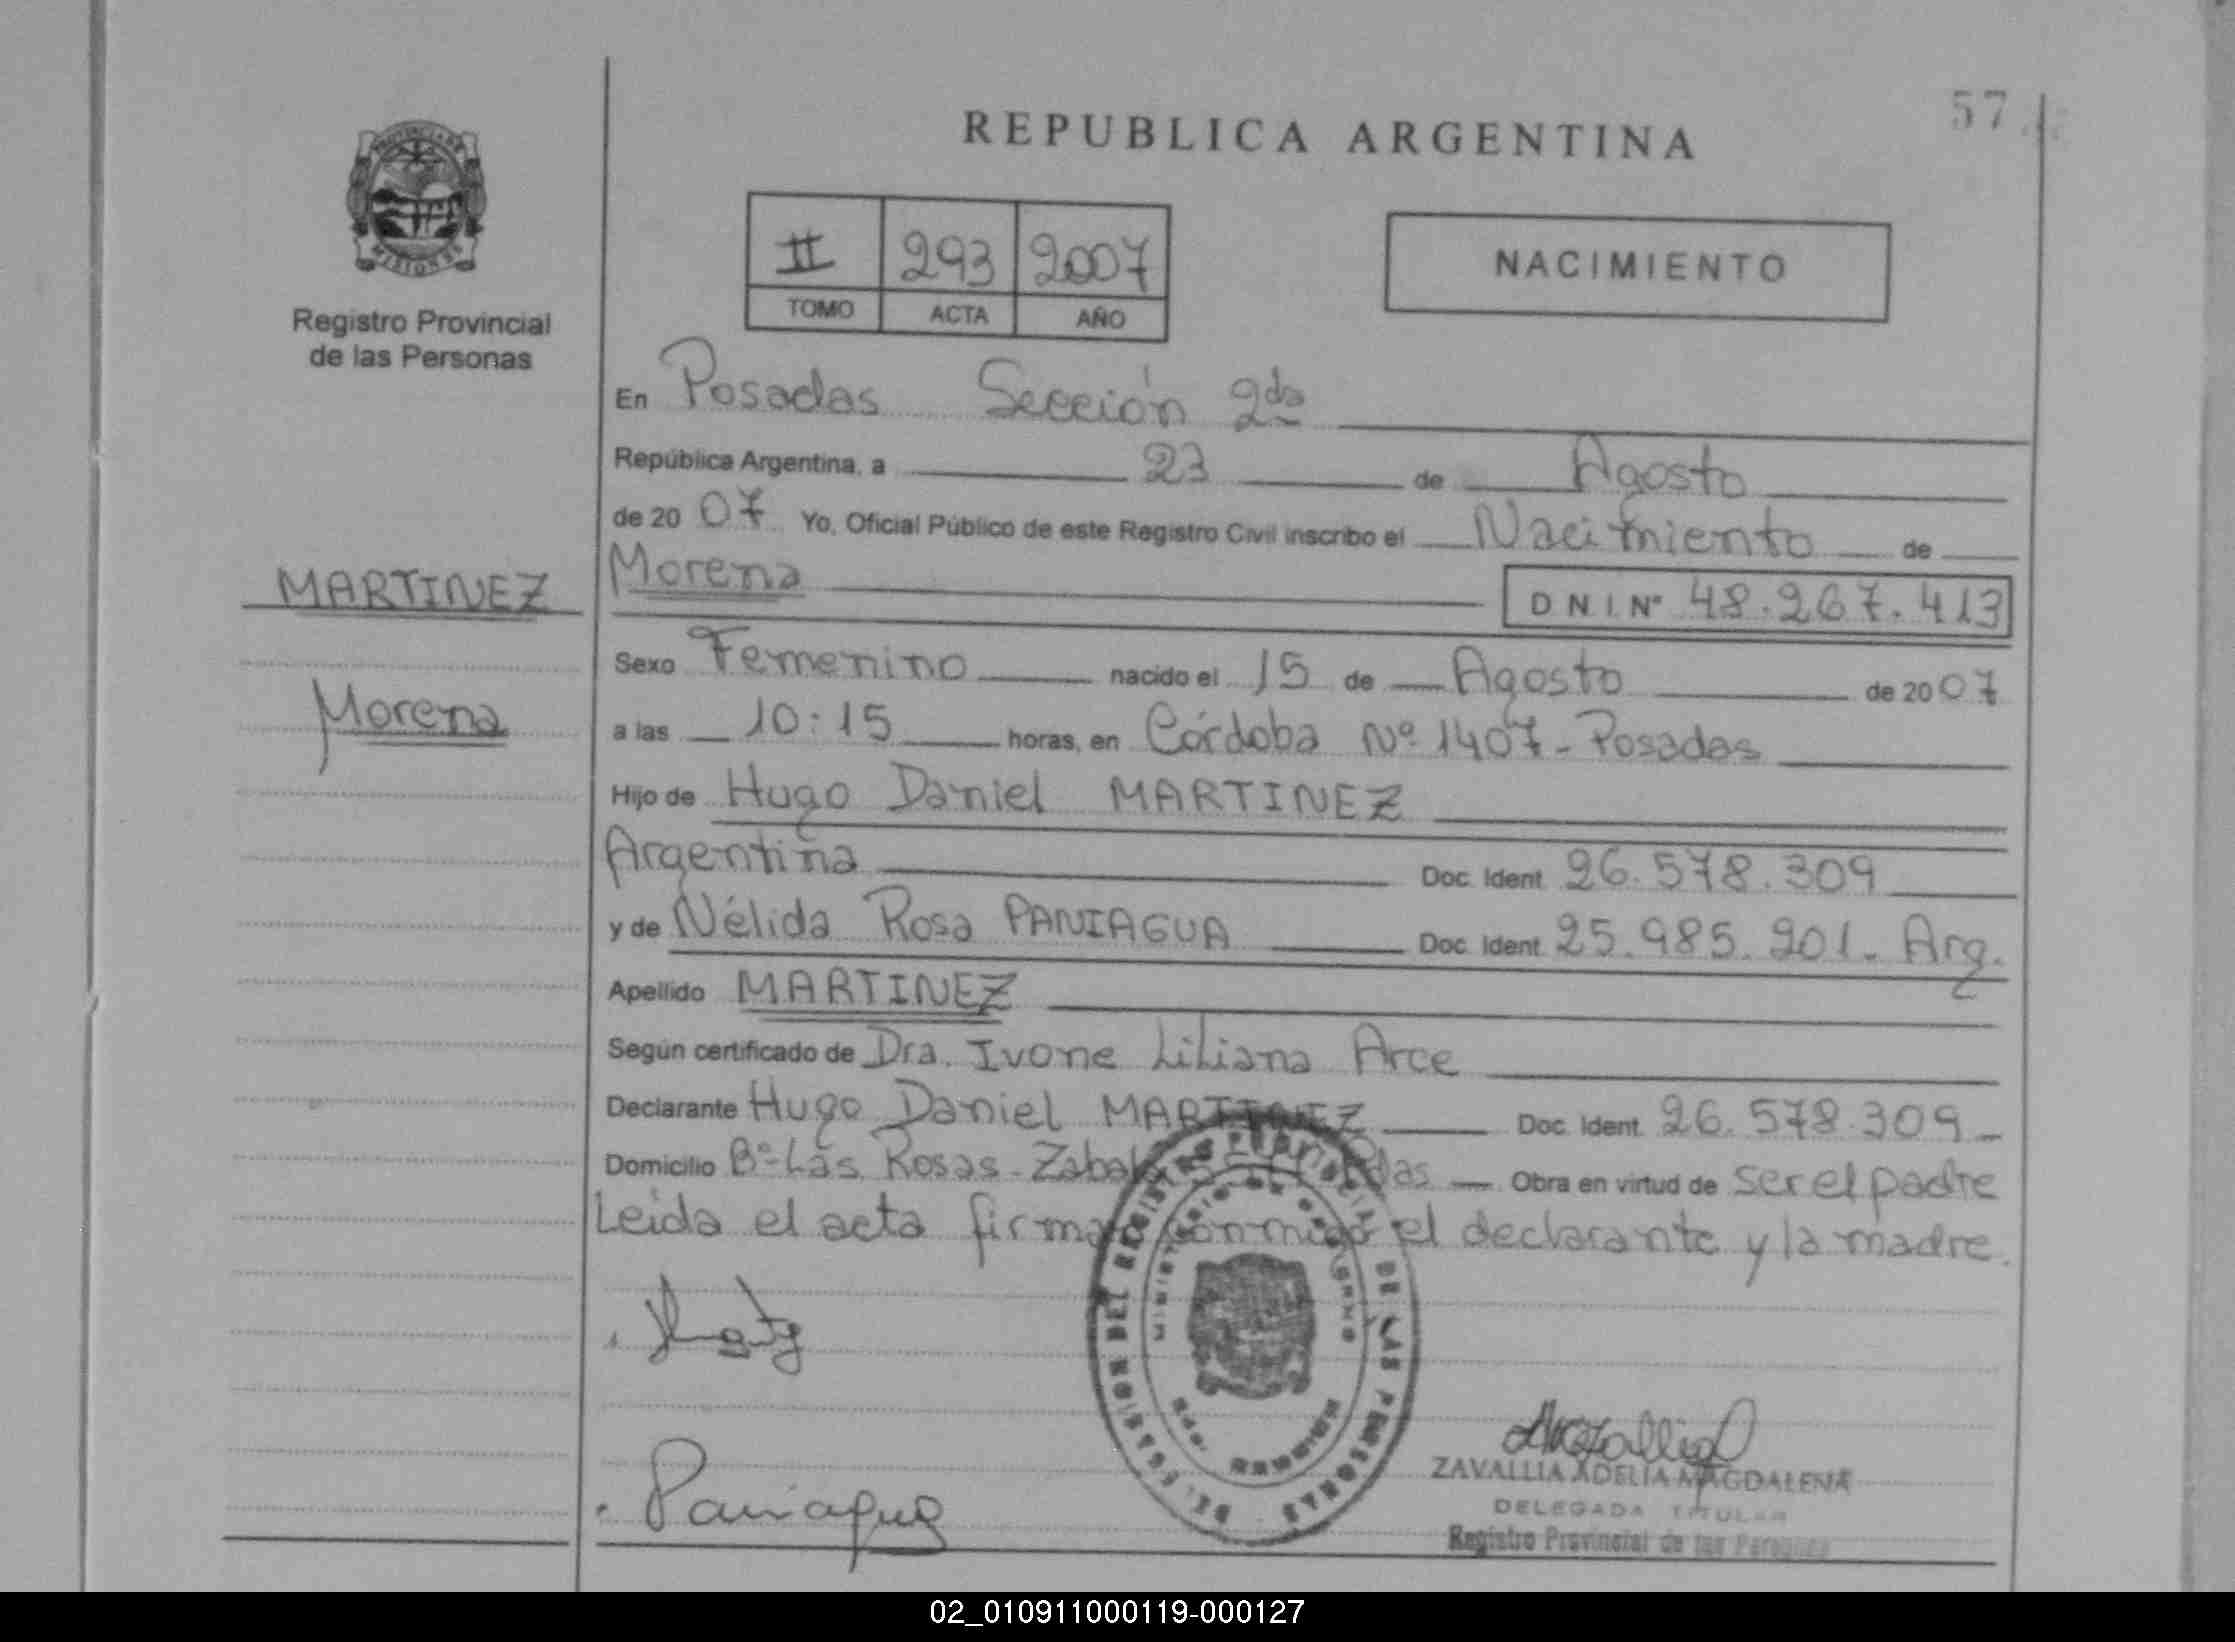 57
REPUBLICA ARGENTINA
PROVINCIA DE
MISIONES
Registro Provincial
de las Personas
II 293 2007
TOMO ACTA AÑO
NACIMIENTO
En Posadas Sección 2da
República Argentina, a 23 de Agosto
de 2007 Yo, Oficial Público de este Registro Civil inscribo el Nacimiento de
MARTINEZ
Morena D N I. Nº 48.267.413
Sexo Femenino nacido el 15 de Agosto de 2007
Morena
a las 10:15 horas, en Córdoba Nº 1407 - Posadas
Hijo de Hugo Daniel MARTINEZ
Argentina Doc. Ident. 26.578.309
y de Nélida Rosa PANIAGUA Doc. Ident. 25.985.201. Arg.
Apellido MARTINEZ
Según certificado de Dra. Ivone Liliana Arce
Declarante Hugo Daniel MARTINEZ Doc. Ident. 26.578.309
Domicilio Bº Las Rosas - Obra en virtud de ser el padre
Leida el acta firman conmigo el declarante y la madre.
DEL REGISTRO PROVINCIAL DE LAS PERSONAS
MINISTERIO DE GOBIERNO
MISIONES
Paniagua
ZAVALLIA ADELIA MAGDALENA
DELEGADA TITULAR
Registro Provincial de las Personas
02_010911000119-000127